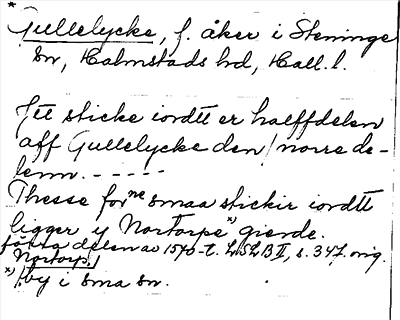 *
Gullelycke, f. åker i Steninge
sn, Halmstads hd, Hall. l.
Itt sticke iordtt er halffdelen
aff Gullelycke den norre de-
lenn. - - - - -
Thesse forne smaa stickir iordtt
ligger y Nortorpe*) gierde.
första delen av 1570-t. LSLB II, s. 347. orig.
Nortorp.
*) by i sma sn.